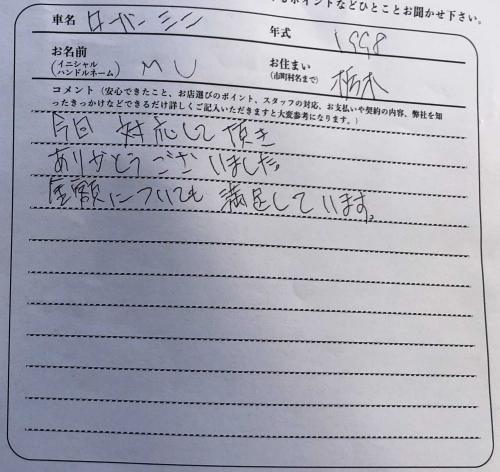 るポイントなどひとことお聞かせ下さい。
車名 ローバーミニ 年式 1998
お名前
(イニシャル
ハンドルネーム) MU お住まい
(市町村名まで) 栃木
コメント(安心できたこと、お店選びのポイント、スタッフの対応、お支払いや契約の内容、弊社を知
ったきっかけなどできるだけ詳しくご記入いただきますと大変参考になります。)
今回 対応して頂き
ありがとうございました。
金額についても 満足しています。